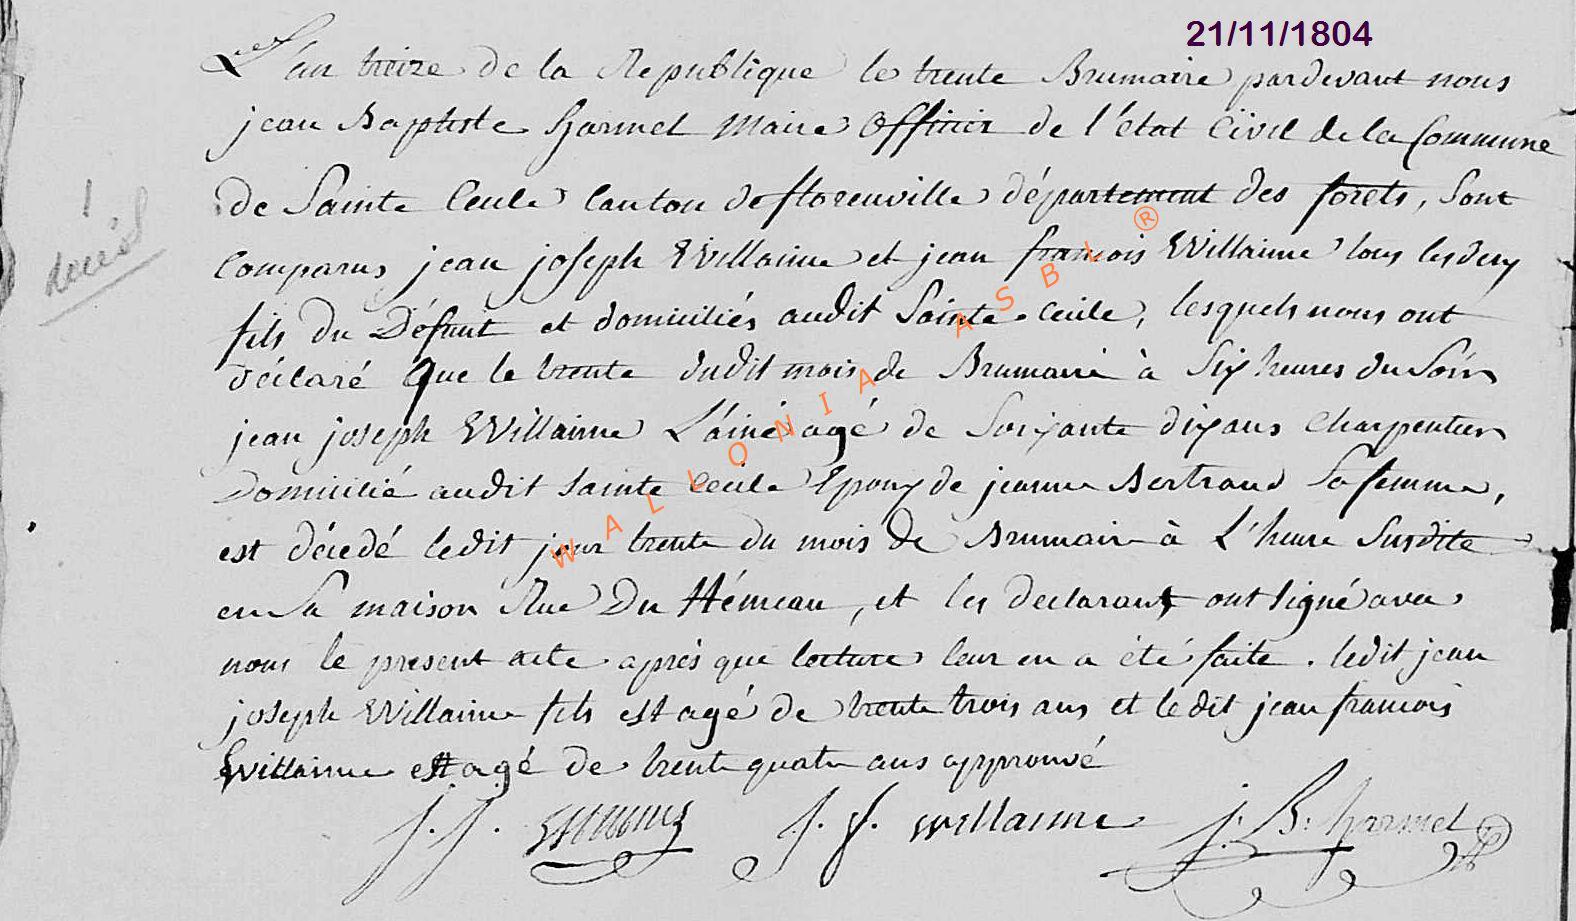 21/11/1804
L'an treize de la Republique le trente Brumaire pardevant nous
jean Baptiste Harmel Maire Officier de l'état Civil de la Commune
de Sainte Cecile Canton de florenville département des forets, sont
Comparus jean joseph Willaime et jean francois Willaime tous les deux
fils du Défunt et domiciliés audit Sainte Cecile, lesquels nous ont
déclaré Que le trente dudit mois de Brumaire à Six heures du Soir
jean joseph Willaime L'ainé agé de Soixante dix ans Charpentier
Domicilié audit Sainte Cecile Epoux de jeanne Bertrand Sa femme,
est décedé ledit jour trente du mois de Brumaire à L'heure Susdite
en Sa maison Rue Du Hémeau, et les declarant ont signé avec
nous le present acte après que lecture leur en a été faite. ledit jean
joseph Willaime fils est agé de trente trois ans et ledit jean francois
Willaime est agé de trente quatre ans approuvé
J. J. J. f. willaime J. B. harmel
1
décés
WALLONIA ASBL ®